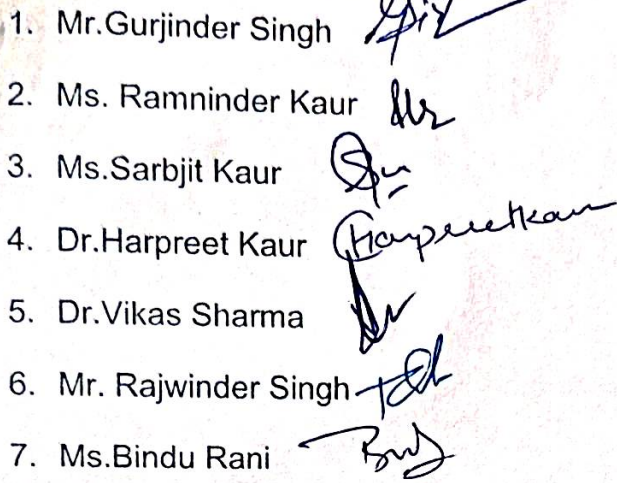 1. Mr.Gurjinder Singh
2. Ms. Ramninder Kaur
3. Ms.Sarbjit Kaur
4. Dr.Harpreet Kaur Harpreetkaur
5. Dr.Vikas Sharma
6. Mr. Rajwinder Singh
7. Ms.Bindu Rani